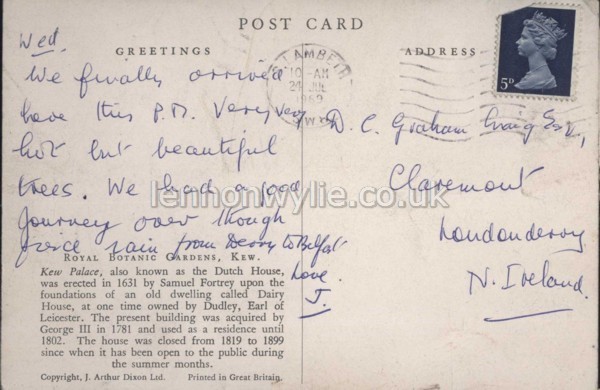 POST CARD
GREETINGS
ADDRESS
Wed.
We finally arrived
here this P.M. Very very
hot but beautiful
trees. We had a good
journey over though
rain from Derry to Belfast
Love.
J.
LAMBETH
10-AM
24 JUL
1969
5D
D. C. Graham Craig Esq.,
Claremont
Londonderry
N. Ireland.
lennonwylie.co.uk
ROYAL BOTANIC GARDENS, KEW.
Kew Palace, also known as the Dutch House,
was erected in 1631 by Samuel Fortrey upon the
foundations of an old dwelling called Dairy
House, at one time owned by Dudley, Earl of
Leicester. The present building was acquired by
George III in 1781 and used as a residence until
1802. The house was closed from 1819 to 1899
since when it has been open to the public during
the summer months.
Copyright, J. Arthur Dixon Ltd. Printed in Great Britain.